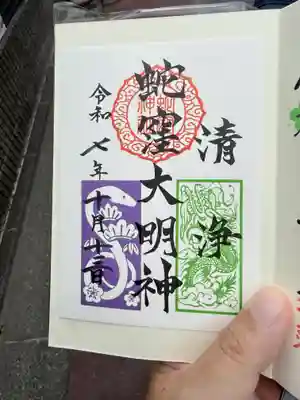 清浄
蛇窪大明神
令和七年十月十三日